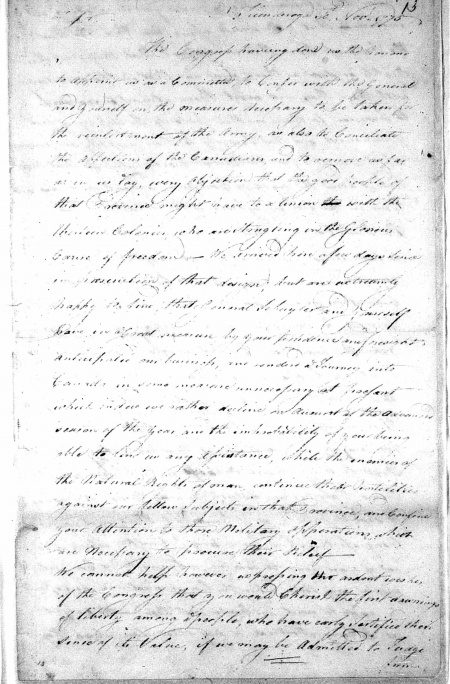 13
Ticonderoga Nov. 1775
The Congress having done us the honor
to appoint us as a Committee to Confer with the General
and yourself on the measures necessary to be taken for
the reinforcement of the Army, as also to Conciliate
the affections of the Canadians and to remove as far
as in us lay, every Objection that the good people of
that Province might have to a Union with the
Colonies, who are Struggling in the Glorious
Cause of freedom — We arrived here a few days since
in prosecution of that design, but are extremely
happy to find, that General Schuyler and yourself
have in a Great measure by your prudence and foresight
anticipated our business, and render a Journey into
Canada in some measure unnecessary at present
which indeed we rather decline on account of the advanced
season of the year and the improbability of your being
able to lend us any Assistance, while the enemies of
the Natural Rights of man, continue their hostilities
against our fellow Subjects in that Province, and Confine
your Attention to those Military Opperations which
are Necessary to procure their Relief —
We cannot help however expressing the ardent wishes
of the Congress that you would Cherish the first dawnings
of liberty among a people, who have early testified their
sense of its Value, if we may be Admitted to Judge
from